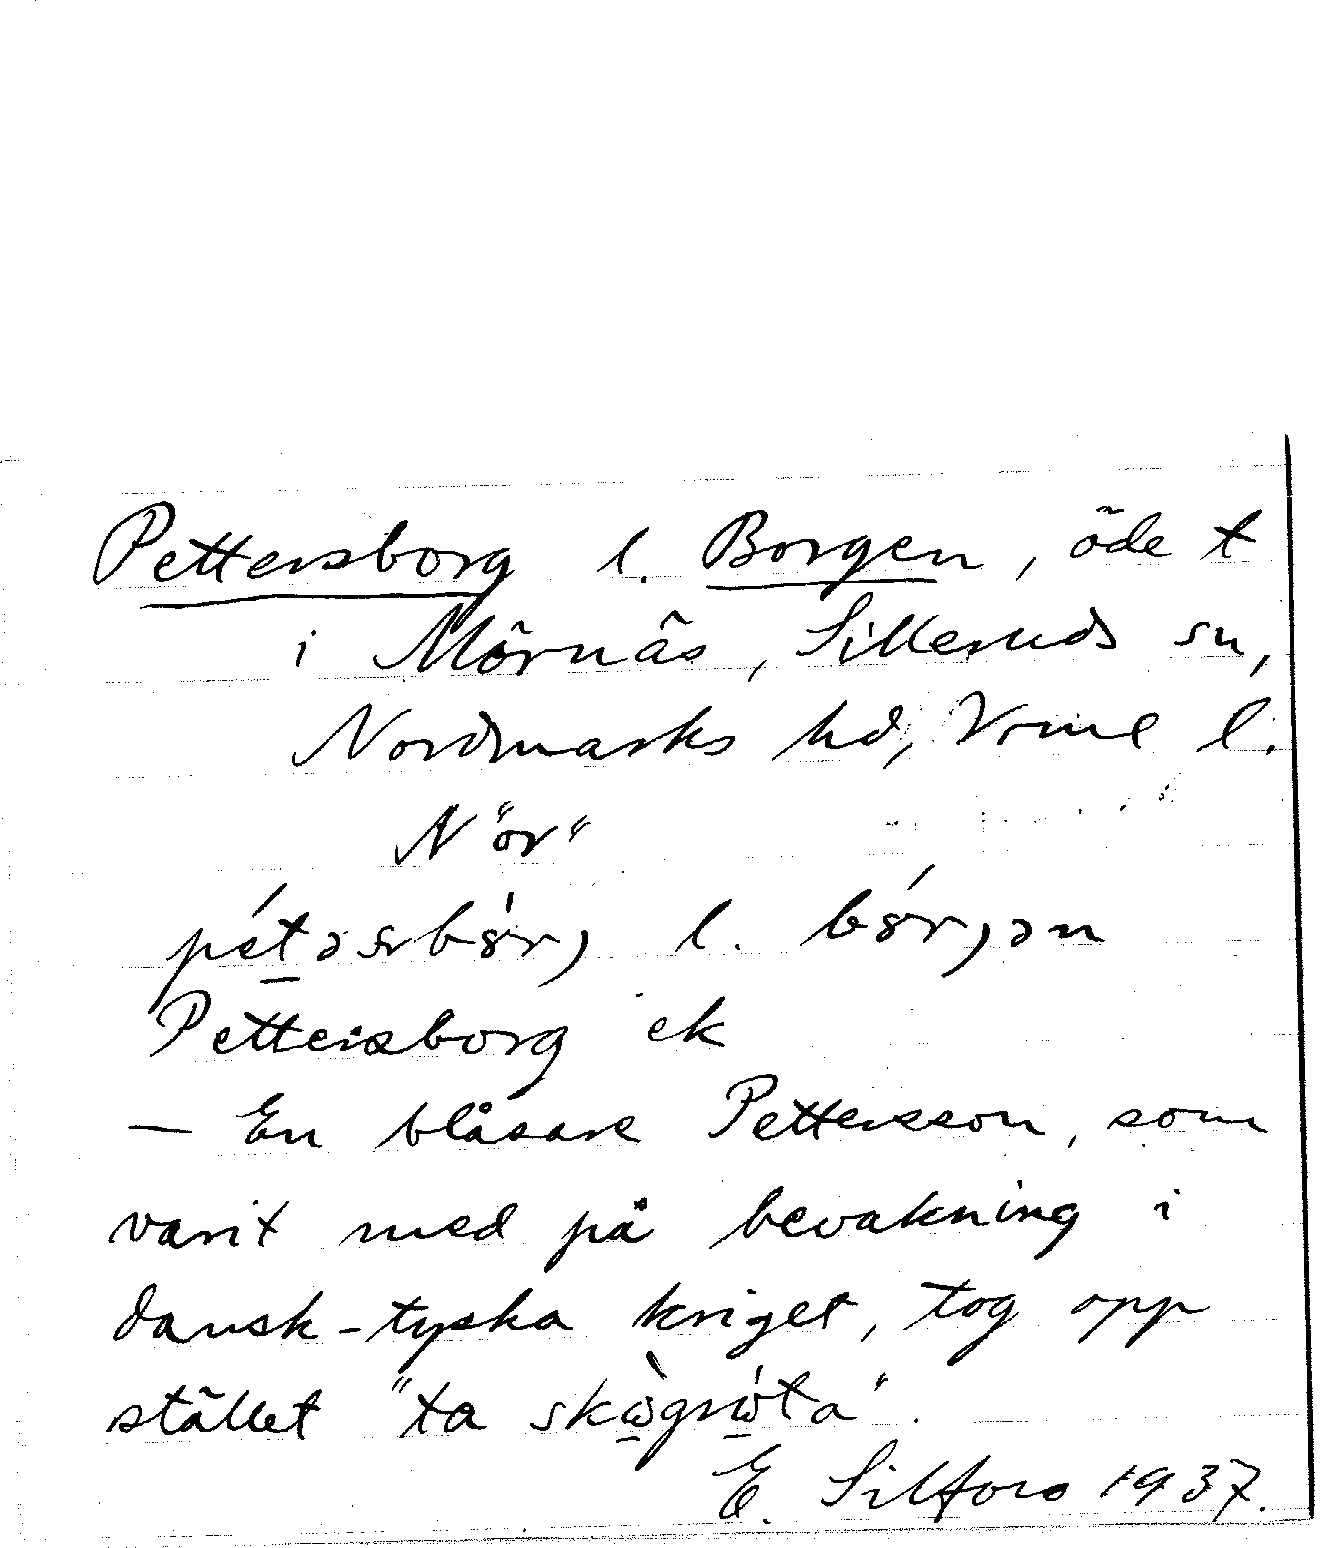 Pettersborg l. Borgen, öde t
i Mörnäs, Silleruds sn,
Nordmarks hd, Vrml l.
N "or"
pét̠ərsbör̀j l. börjən
Pettersborg ek
— En blåsare Pettersson, som
varit med på bevakning i
dansk-tyska kriget, tog opp
stället "ta skògróta".
E. Silfors 1937.